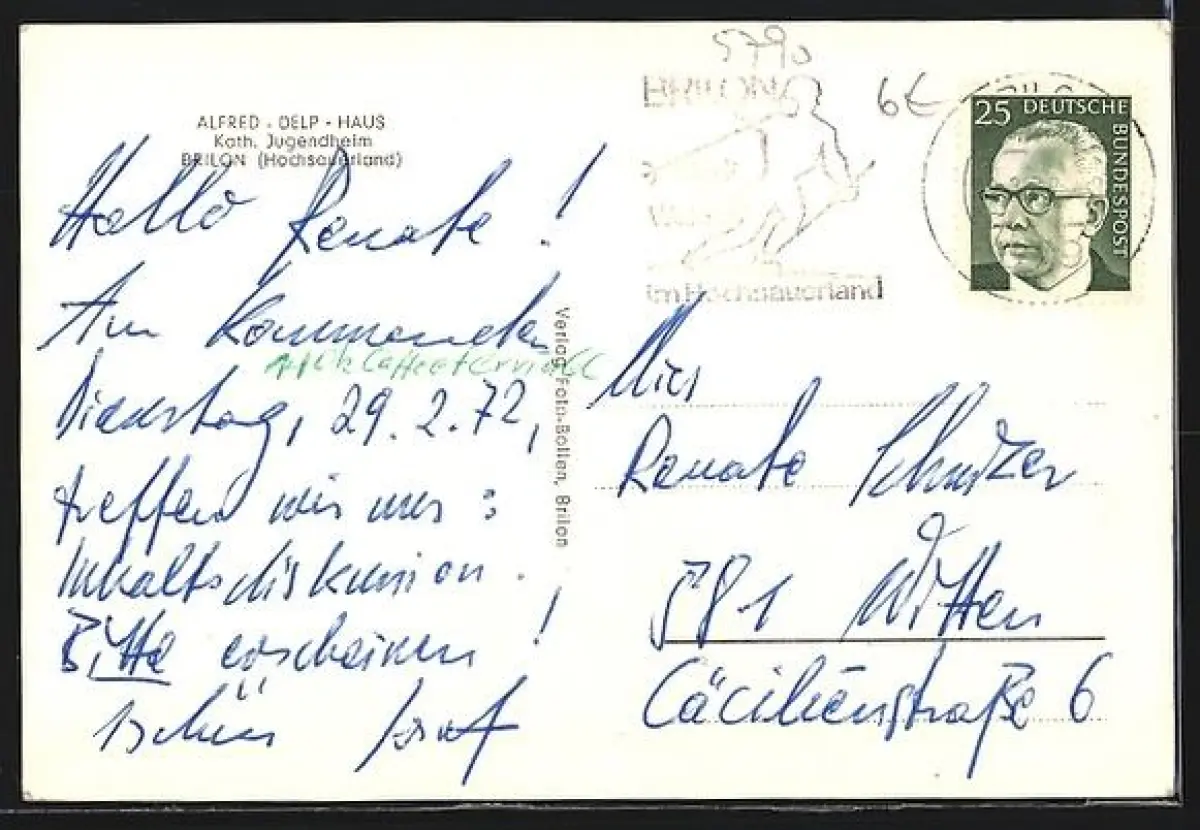 5790
BRILON
6€
25 DEUTSCHE
BUNDESPOST
ALFRED - DELP - HAUS
Kath. Jugendheim
BRILON (Hochsauerland)
Hallo Renate!
Am kommenden
Dienstag, 29.2.72,
treffen wir uns:
Inhaltsdiskussion.
Bitte erscheinen!
Tschüs Josef
Verlag Foto-Bollen, Brilon
im Hochsauerland
Miss
Renate
581 Witten
Cäcilienstraße 6